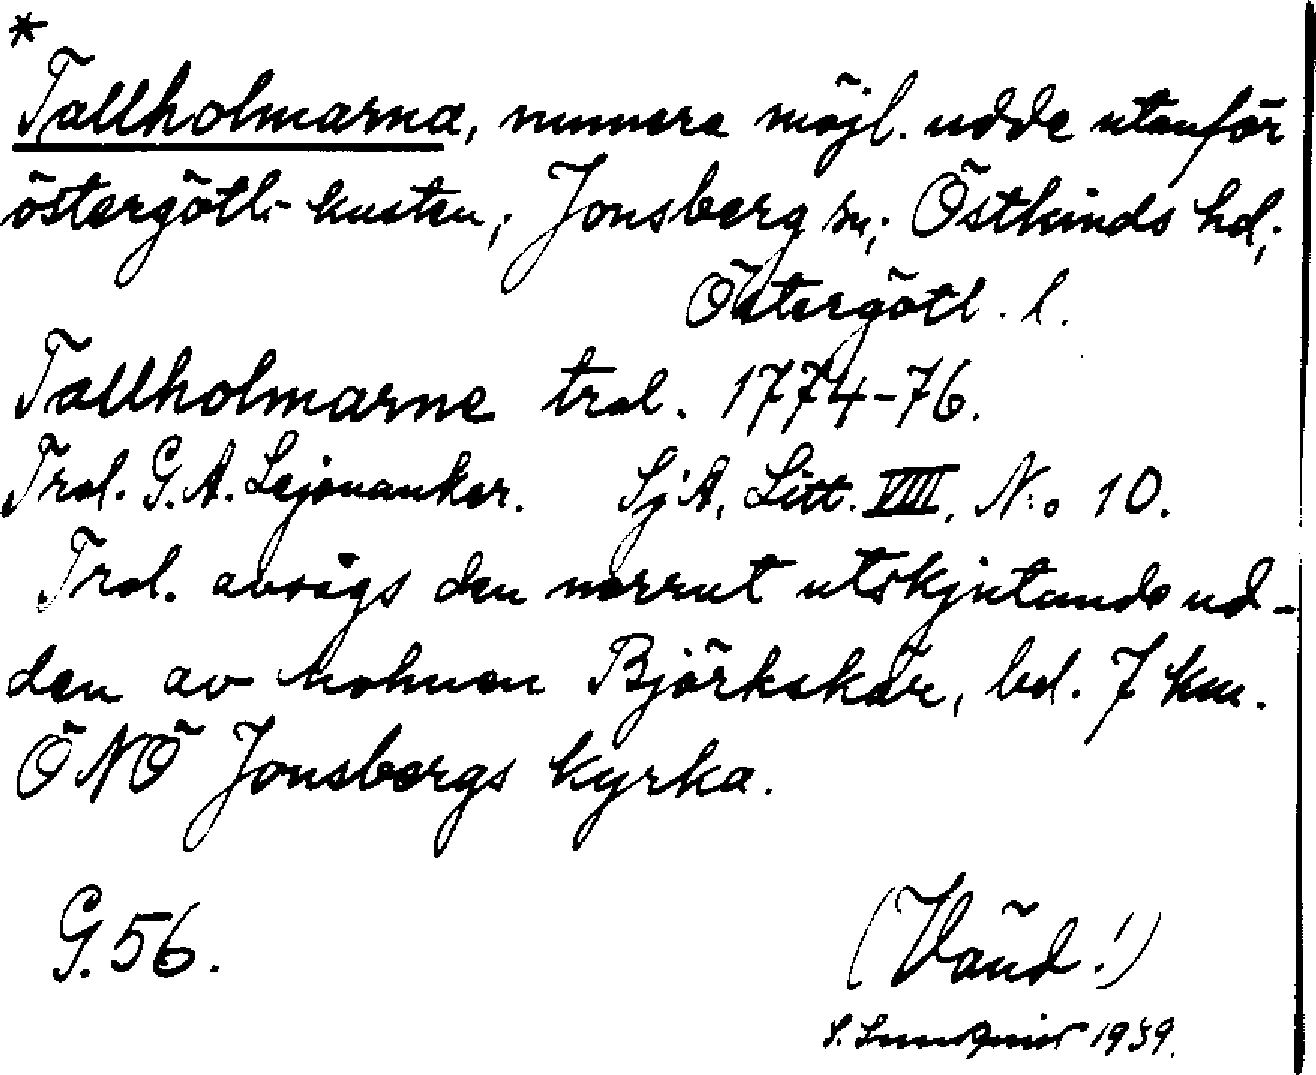 *
Tallholmarna, numera möjl. udde utanför
östergötl.- kusten, Jonsberg sn; Östkinds hd,
Östergötl. l.
Tallholmarne trol. 1774-76.
Trol. G. A. Lejonanker. SjA, Litt. VIII, No 10.
Trol. avsågs den norrut utskjutande ud-
den av holmen Björkskär, bel. 7 km.
ÖNÖ Jonsbergs kyrka.
G. 56.
(Vänd!)
1939.